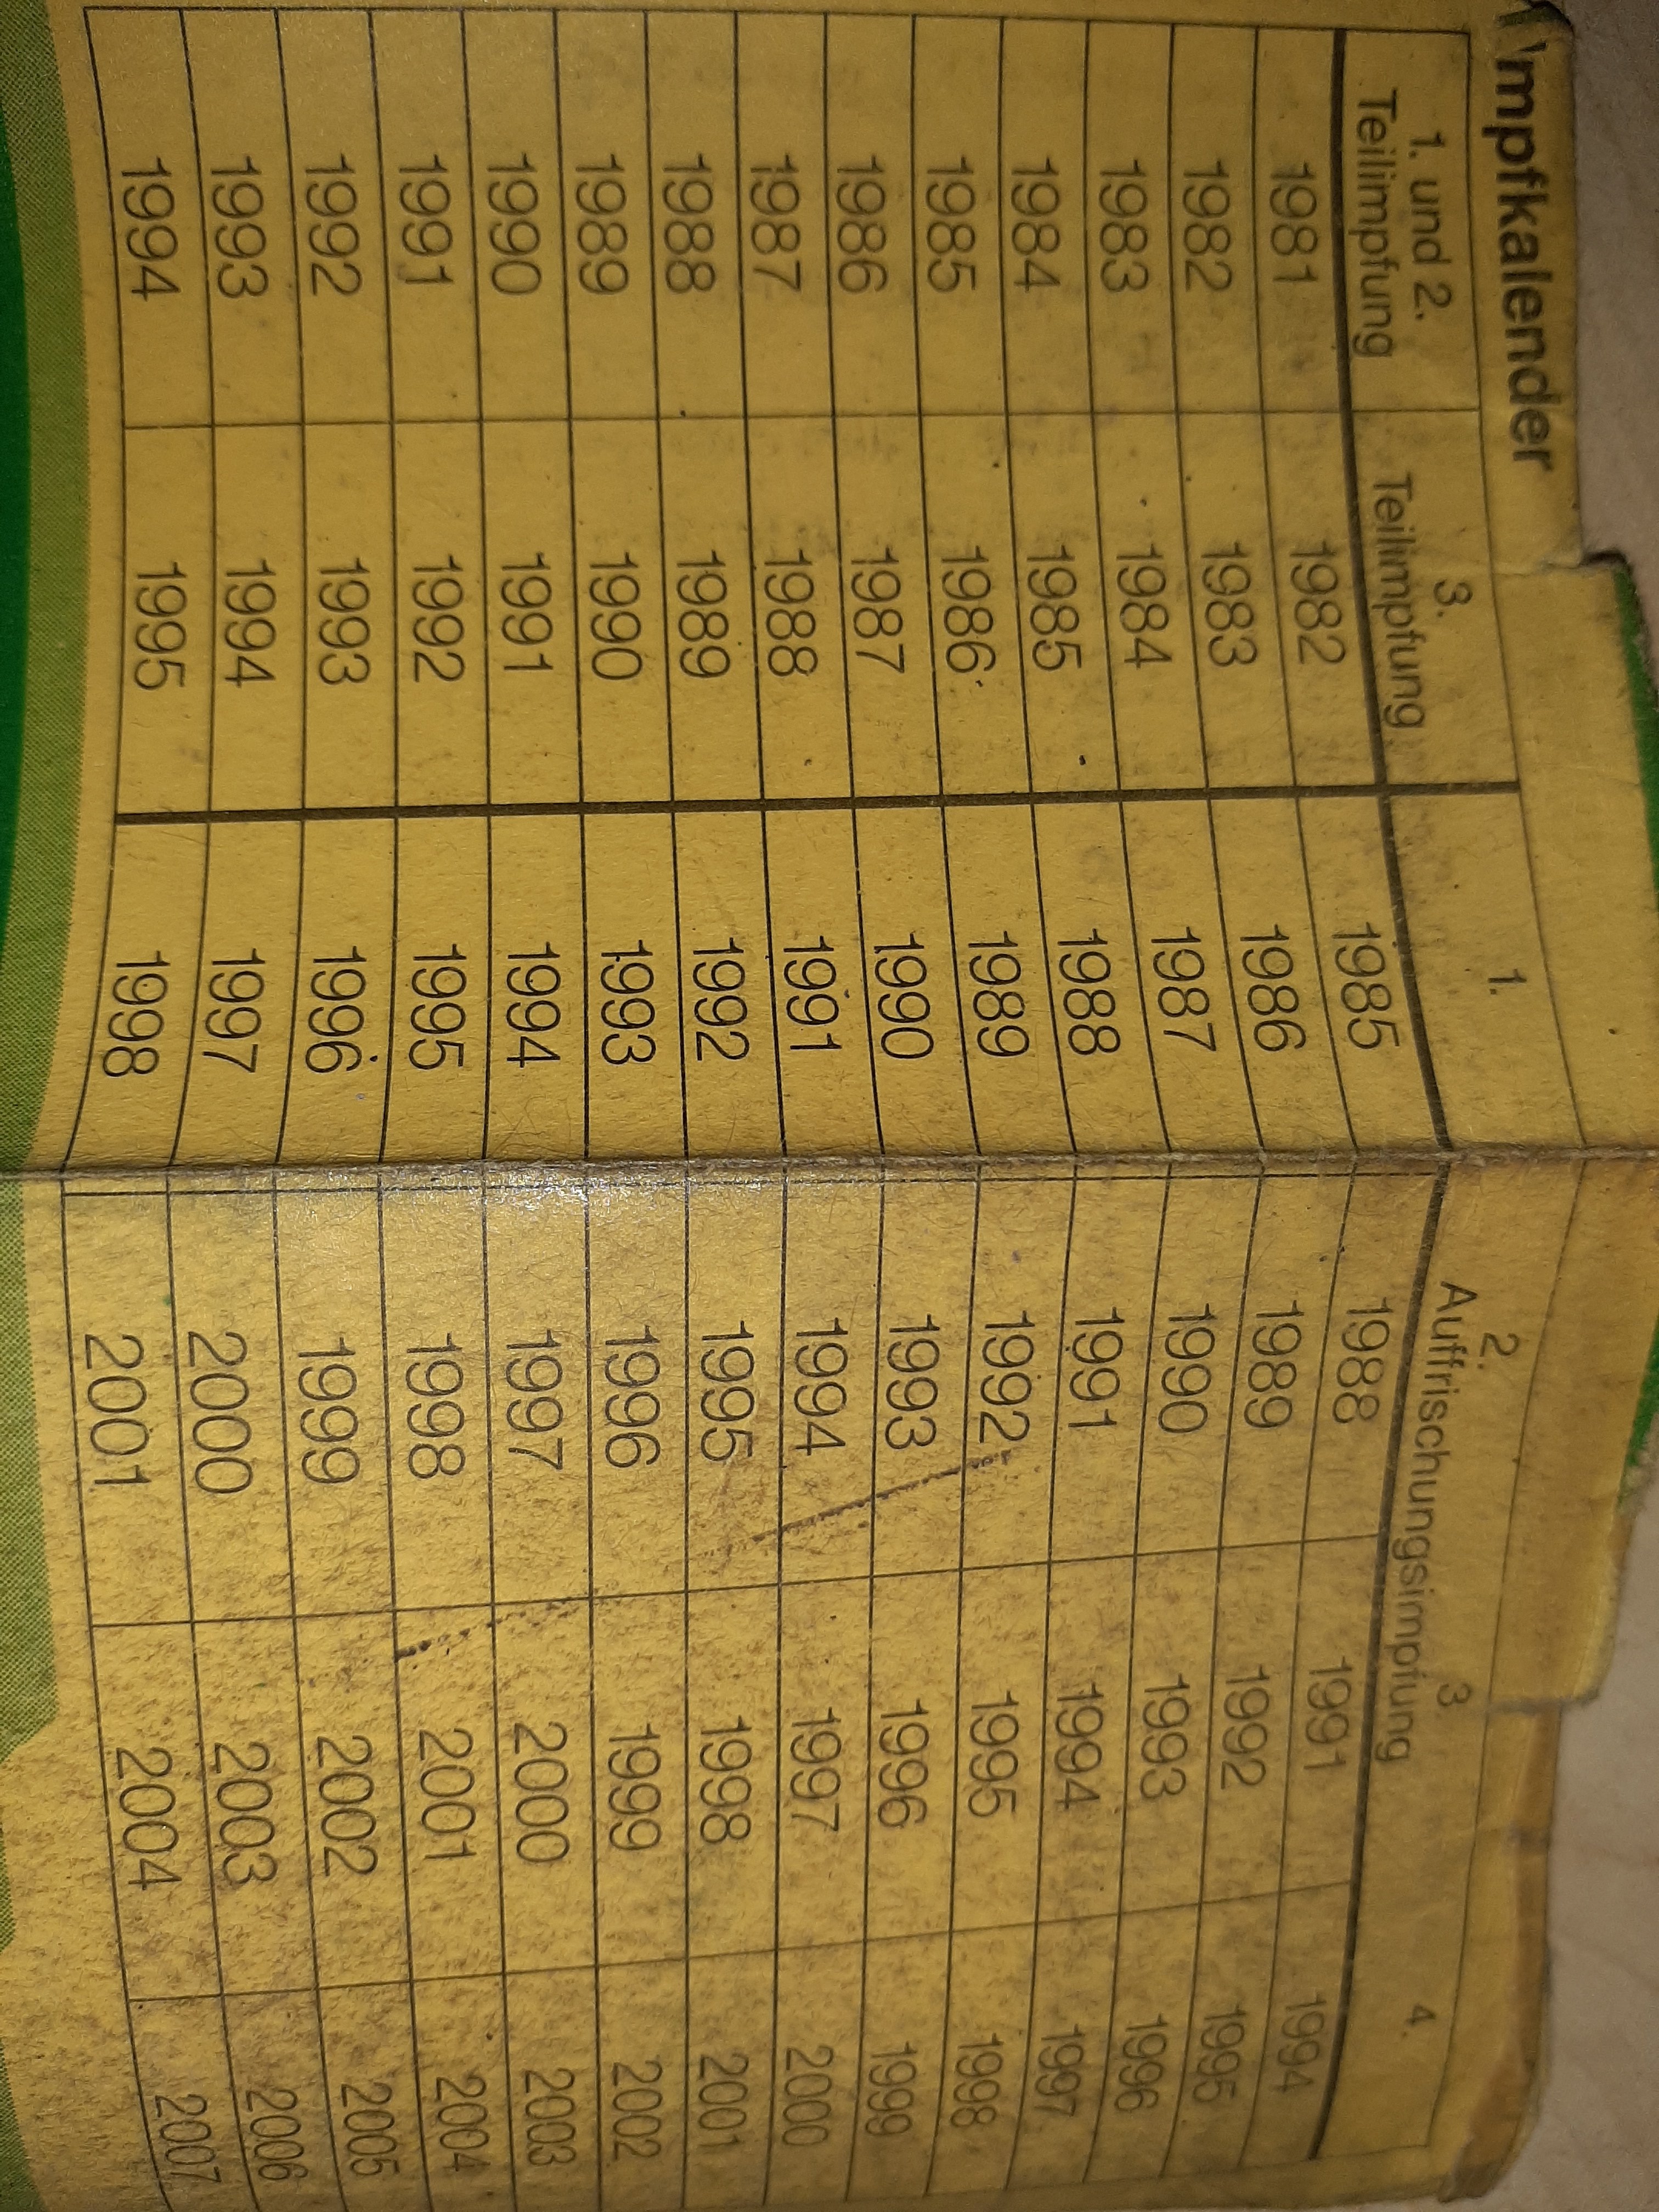 Impfkalender
1. und 2. Teilimpfung 3. Teilimpfung 1. 2. 3. 4.
Auffrischungsimpfung
1981 1982 1985 1988 1991 1994
1982 1983 1986 1989 1992 1995
1983 1984 1987 1990 1993 1996
1984 1985 1988 1991 1994 1997
1985 1986 1989 1992 1995 1998
1986 1987 1990 1993 1996 1999
1987 1988 1991 1994 1997 2000
1988 1989 1992 1995 1998 2001
1989 1990 1993 1996 1999 2002
1990 1991 1994 1997 2000 2003
1991 1992 1995 1998 2001 2004
1992 1993 1996 1999 2002 2005
1993 1994 1997 2000 2003 2006
1994 1995 1998 2001 2004 2007